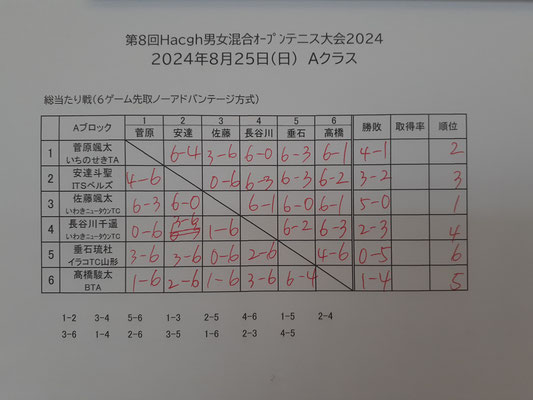 第8回Hacgh男女混合オープンテニス大会2024
2024年8月25日(日) Aクラス
総当たり戦(6ゲーム先取ノーアドバンテージ方式)
1 2 3 4 5 6
Aブロック 菅原 安達 佐藤 長谷川 垂石 高橋 勝敗 取得率 順位
1 菅原颯太 いちのせきTA 6-4 3-6 6-0 6-3 6-1 4-1 2
2 安達斗聖 ITSベルズ 4-6 0-6 6-3 6-3 6-2 3-2 3
3 佐藤颯太 いわきニュータウンTC 6-3 6-0 6-1 6-0 6-1 5-0 1
4 長谷川千遥 いわきニュータウンTC 0-6 3-6 1-6 6-2 6-3 2-3 4
5 垂石琉社 イラコTC山形 3-6 3-6 0-6 2-6 4-6 0-5 6
6 髙橋駿太 BTA 1-6 2-6 1-6 3-6 6-4 1-4 5
1-2 3-4 5-6 1-3 2-5 4-6 1-5 2-4
3-6 1-4 2-6 3-5 1-6 2-3 4-5